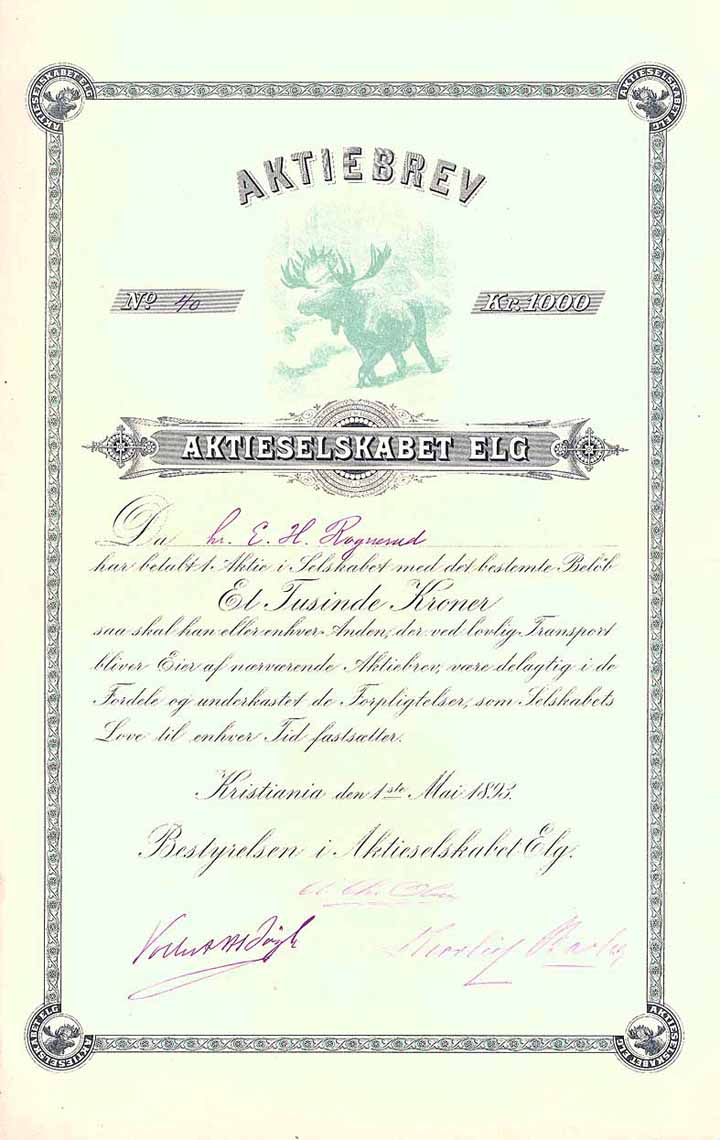 AKTIESELSKABET ELG
AKTIESELSKABET ELG
AKTIEBREV
No 40
Kr. 1000
AKTIESELSKABET ELG
Da hr. E. H. Rognerud
har betalt 1. Aktie i Selskabet med det bestemte Belöb
Et Tusinde Kroner
saa skal han eller enhver Anden, der ved lovlig Transport
bliver Eier af nærværende Aktiebrev, være delagtig i de
Fordele og underkastet de Forpligtelser, som Selskabets
Love til enhver Tid fastsætter.
Kristiania den 1ste Mai 1893.
Bestyrelsen i Aktieselskabet Elg.
AKTIESELSKABET ELG
AKTIESELSKABET ELG